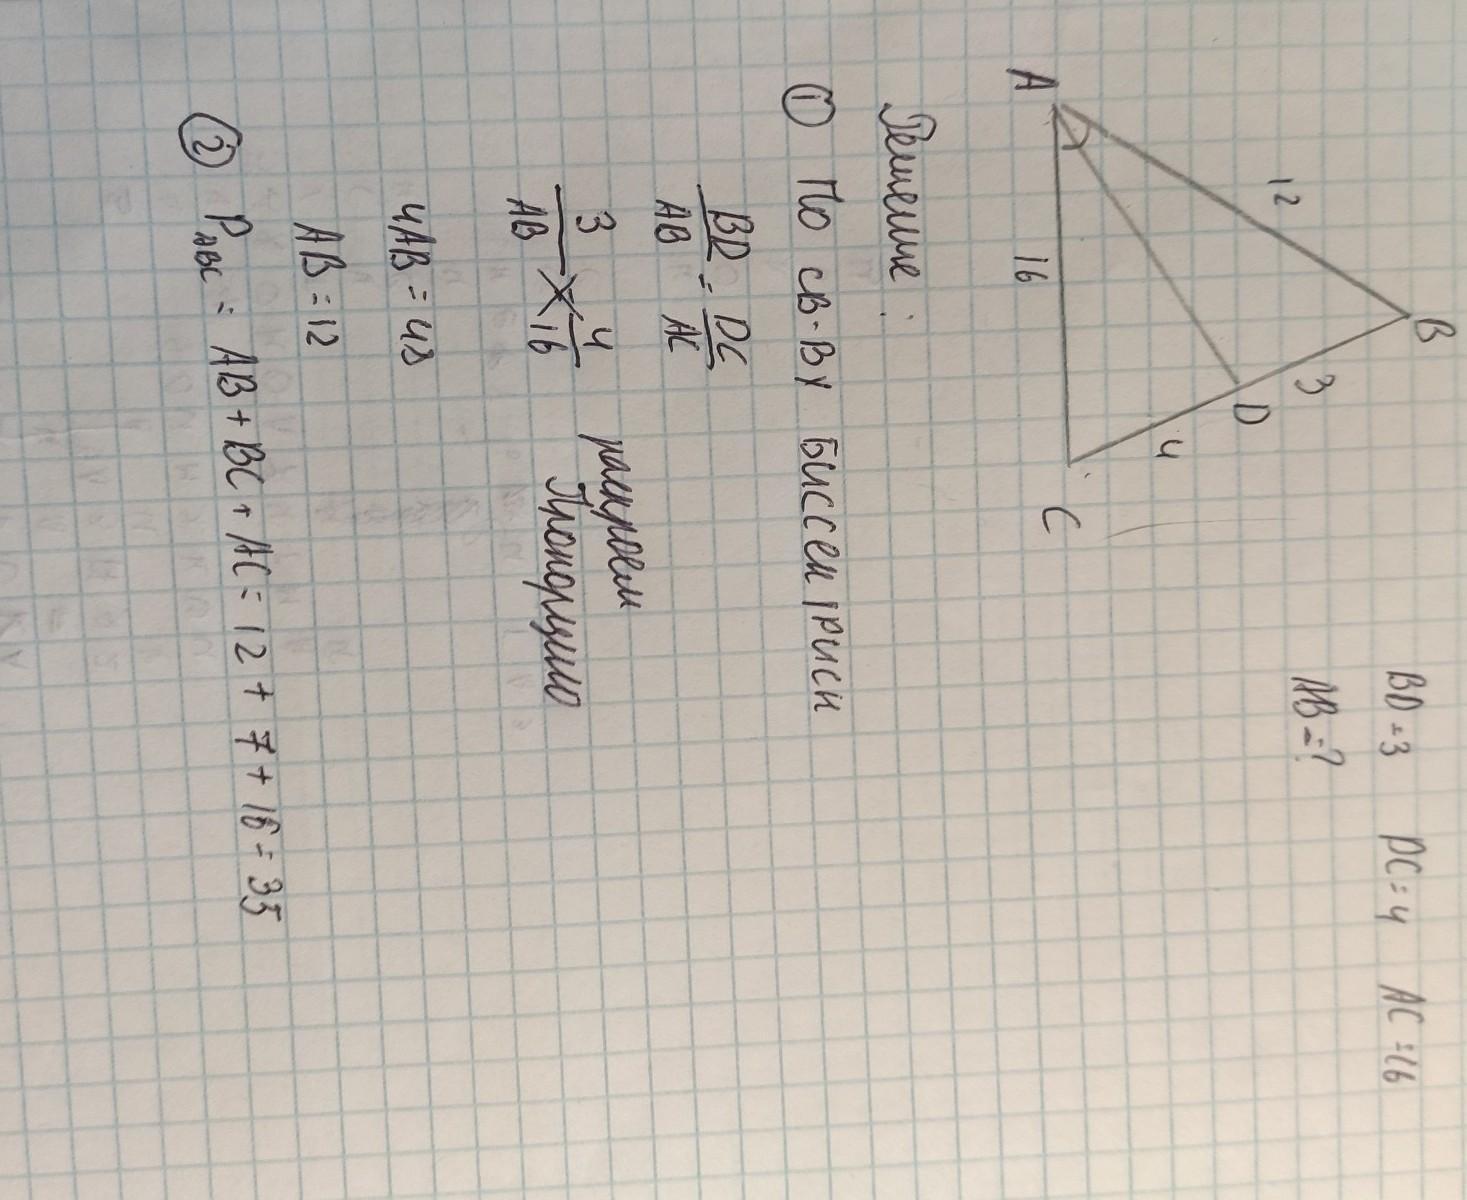 BD = 3 DC = 4 AC = 16
AB = ?
B
12
3
D
4
A
16
C
Решение:
① По св-ву биссектрисы
BD/AB = DC/AC
3/AB = 4/16 раскроем
пропорцию
4AB = 48
AB = 12
② P ABC = AB + BC + AC = 12 + 7 + 16 = 35